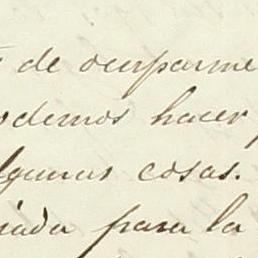 de ocuparme
odemos hacer
lgunas cosas.
iada para la